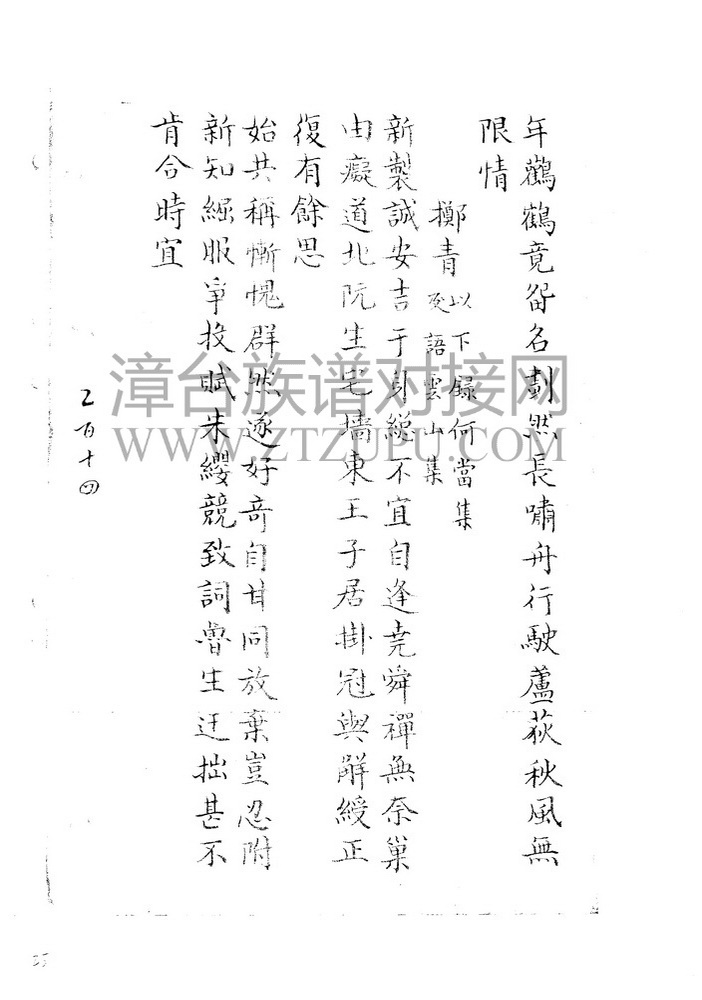 年鸛鶴竟留名劃然長嘯舟行駛蘆荻秋風無
限情
擲青以下錄何當集
及語雲山集
新製誠安吉于身總不宜自逢堯舜禪無奈巢
由癡道北阮生宅墻東王子居掛冠與解綬正
復有餘思
始共稱慚愧群然逐好奇自甘同放棄豈忍附
新知綑服爭投賦朱纓競致詞魯生迂拙甚不
肯合時宜
乙百十四
漳台族谱对接网
WWW.ZTZUPU.COM
25